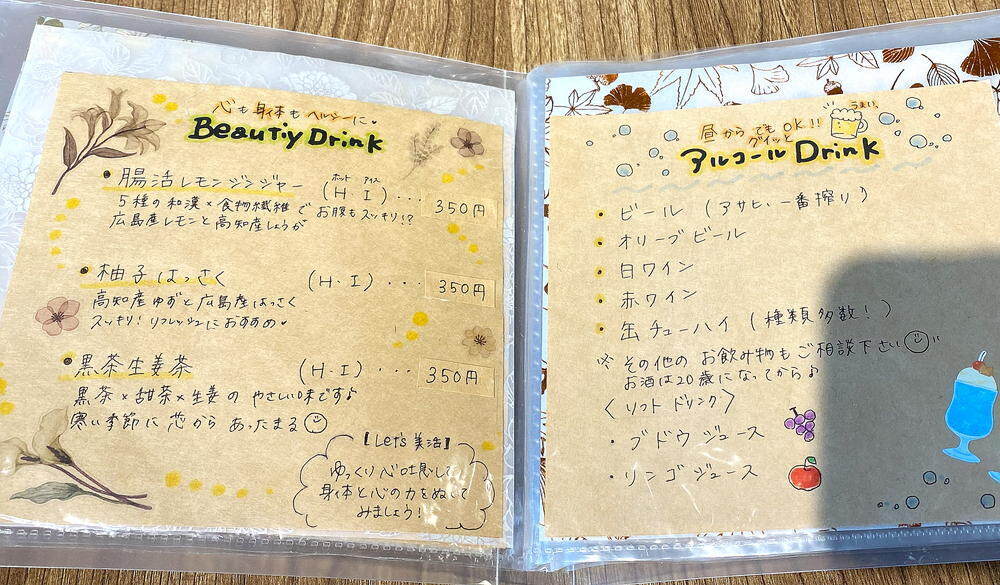 心も身体もヘルシーに
Beautiy Drink
・腸活レモンジンジャー (H I) ・・・ 350円
ホット アイス
5種の和漢×食物繊維でお腹もスッキリ!?
広島産レモンと高知産しょうが
・柚子はっさく (H・I) ・・・ 350円
高知産ゆずと広島産はっさく
スッキリ!リフレッシュにおすすめ
・黒茶生姜茶 (H・I) ・・・ 350円
黒茶×甜茶×生姜のやさしい味です♪
寒い季節に芯からあったまる
【Let's 美活】
ゆっくり心呼吸して
身体と心の力をぬいて
みましょう!
昼からでもOK!!
グイッと
うまい。
アルコール Drink
・ビール (アサヒ、一番搾り)
・オリーブビール
・白ワイン
・赤ワイン
・缶チューハイ (種類多数!)
※その他のお飲み物もご相談下さい
お酒は20歳になってから♪
〈ソフトドリンク〉
・ブドウジュース
・リンゴジュース